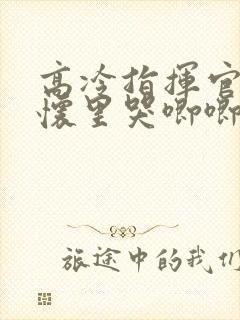 高冷指揮官
懷里哭唧唧
旅途中的我们